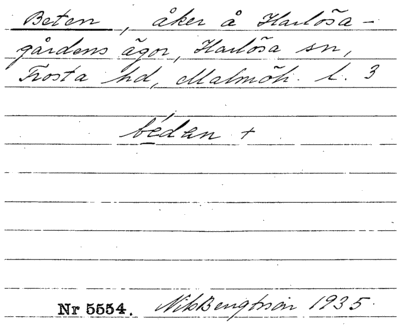 Beten, åker å Harlösa-
gårdens ägor, Harlösa sn,
Frosta hd, Malmöh. l. 3
bédan +
Nr 5554. Nils Bengtsson 1935.